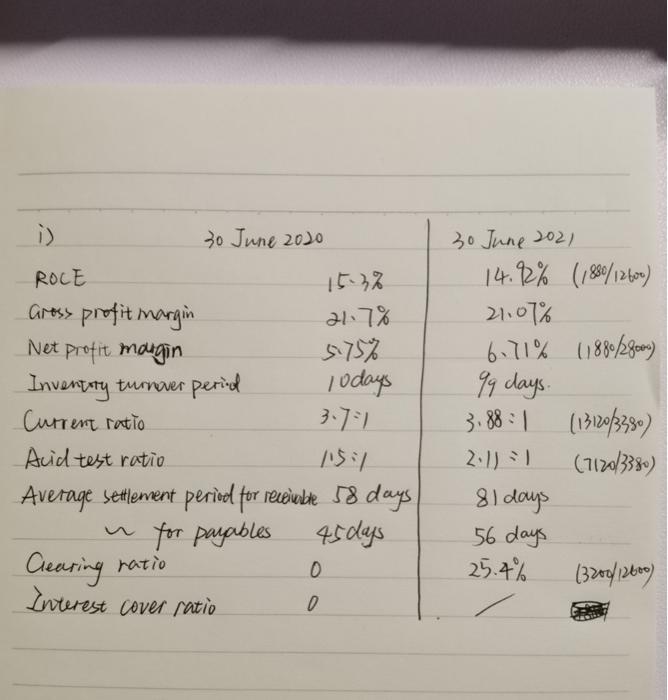 i) 30 June 2020 30 June 2021
ROCE 15.3% 14.92% (1880/12600)
Gross profit margin 21.7% 21.07%
Net profit margin 5.75% 6.71% (1880/28000)
Inventory turnover period 10 days 99 days.
Current ratio 3.7:1 3.88:1 (13120/3380)
Acid test ratio 1.5:1 2.11:1 (7120/3380)
Average settlement period for receivable 58 days 81 days
for payables 45 days 56 days
Gearing ratio 0 25.4% (3200/12600)
Interest cover ratio 0 /